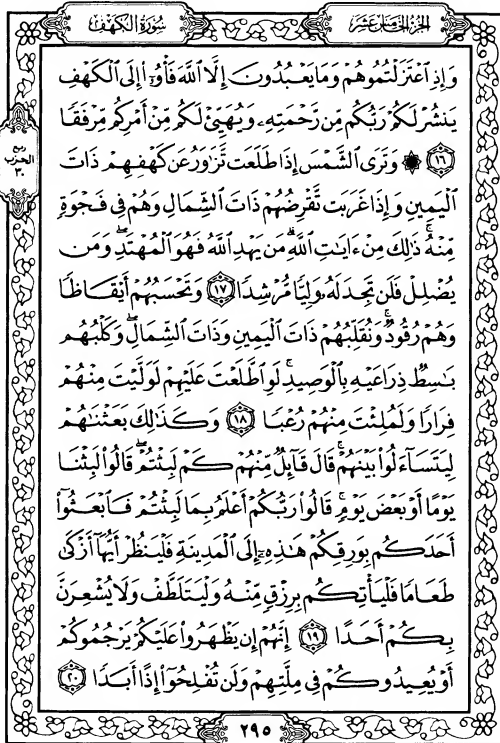 الجزء الخامس عشر
سورة الكهف
وَإِذِ ٱعْتَزَلْتُمُوهُمْ وَمَا يَعْبُدُونَ إِلَّا ٱللَّهَ فَأْوُۥٓا۟ إِلَى ٱلْكَهْفِ
يَنشُرْ لَكُمْ رَبُّكُم مِّن رَّحْمَتِهِۦ وَيُهَيِّئْ لَكُم مِّنْ أَمْرِكُم مِّرْفَقًا
١٦ ۞ وَتَرَى ٱلشَّمْسَ إِذَا طَلَعَت تَّزَٰوَرُ عَن كَهْفِهِمْ ذَاتَ
ٱلْيَمِينِ وَإِذَا غَرَبَت تَّقْرِضُهُمْ ذَاتَ ٱلشِّمَالِ وَهُمْ فِى فَجْوَةٍ
مِّنْهُ ۚ ذَٰلِكَ مِنْ ءَايَٰتِ ٱللَّهِ ۗ مَن يَهْدِ ٱللَّهُ فَهُوَ ٱلْمُهْتَدِ ۖ وَمَن
يُضْلِلْ فَلَن تَجِدَ لَهُۥ وَلِيًّا مُّرْشِدًا ١٧ وَتَحْسَبُهُمْ أَيْقَاظًا
وَهُمْ رُقُودٌ ۚ وَنُقَلِّبُهُمْ ذَاتَ ٱلْيَمِينِ وَذَاتَ ٱلشِّمَالِ ۖ وَكَلْبُهُم
بَٰسِطٌ ذِرَاعَيْهِ بِٱلْوَصِيدِ ۚ لَوِ ٱطَّلَعْتَ عَلَيْهِمْ لَوَلَّيْتَ مِنْهُمْ
فِرَارًا وَلَمُلِئْتَ مِنْهُمْ رُعْبًا ١٨ وَكَذَٰلِكَ بَعَثْنَٰهُمْ
لِيَتَسَآءَلُوا۟ بَيْنَهُمْ ۚ قَالَ قَآئِلٌ مِّنْهُمْ كَمْ لَبِثْتُمْ ۖ قَالُوا۟ لَبِثْنَا
يَوْمًا أَوْ بَعْضَ يَوْمٍ ۚ قَالُوا۟ رَبُّكُمْ أَعْلَمُ بِمَا لَبِثْتُمْ فَٱبْعَثُوٓا۟
أَحَدَكُم بِوَرِقِكُمْ هَٰذِهِۦٓ إِلَى ٱلْمَدِينَةِ فَلْيَنظُرْ أَيُّهَآ أَزْكَىٰ
طَعَامًا فَلْيَأْتِكُم بِرِزْقٍ مِّنْهُ وَلْيَتَلَطَّفْ وَلَا يُشْعِرَنَّ
بِكُمْ أَحَدًا ١٩ إِنَّهُمْ إِن يَظْهَرُوا۟ عَلَيْكُمْ يَرْجُمُوكُمْ
أَوْ يُعِيدُوكُمْ فِى مِلَّتِهِمْ وَلَن تُفْلِحُوٓا۟ إِذًا أَبَدًا ٢٠
ربع
الحزب
٣٠
٢٩٥